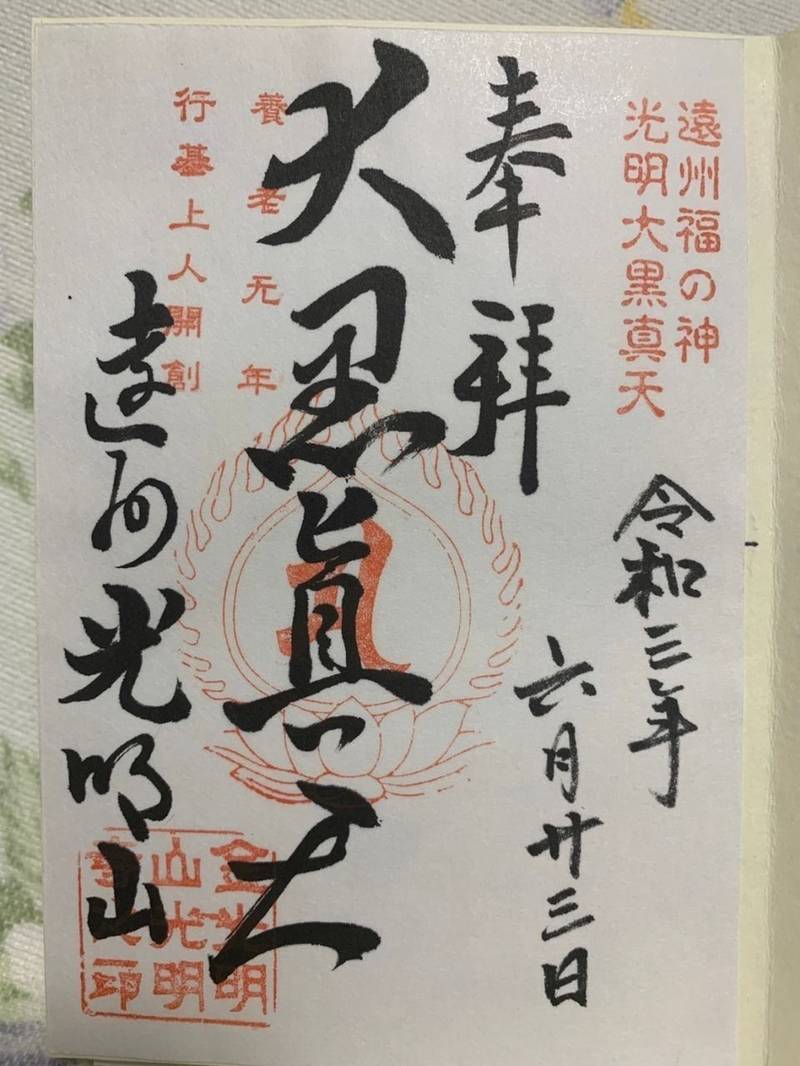 遠州福の神
光明大黒真天
令和三年
六月廿三日
奉拝
大黒真天
養老元年
行基上人開創
遠州光明山
金光明
山光明
寺之印